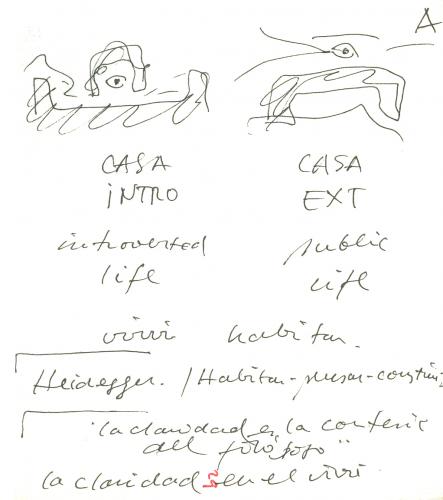 A
CASA CASA
INTRO EXT
introverted public
life life
vivir habitar.
Heidegger. / Habitar-pensar-construir
"la claridad es la cortesía
del filósofo"
la claridad en el vivir.